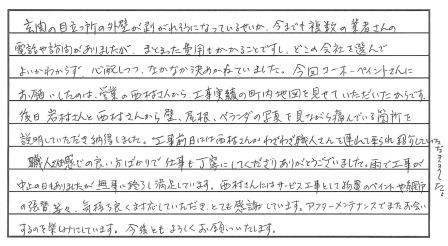 玄関の目立つ所の外壁が剥がれそうになっているせいか、今までも複数の業者さんの
電話や訪問がありましたが、まとまった費用もかかることですし、どこの会社を選んで
よいかわからず、心配しつつ、なかなか決めかねていました。今回コーホーペイントさんに
お願いしたのは、営業の西村さんから工事実績の町内地図を見せていただいたからです。
後日岩村さんと西村さんから壁、尾根、ベランダの写真を見ながら痛んでいる箇所を
説明していただき納得しました。工事前日には西村さんがわざわざ職人さんを連れて来られ紹介していただきました。
職人さんは感じの良い方ばかりで仕事も丁寧にしてくださりありがとうございました。雨で工事が
中止の日もありましたが無事に終らし満足しています。西村さんにはサービス工事として物置のペイントや網戸
の張替等々、気持ち良く対応していただき、とても感謝しています。アフターメンテナンスでまたお会い
するのを楽しみにしています。今後ともよろしくお願いいたします。